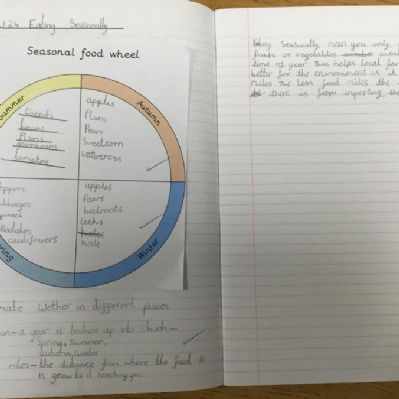 24 Eating Seasonally
Seasonal food wheel
Summer
Carrots
beans
Plums
tomatoes
Autumn
apples
Plums
Pears
Sweetcorn
watercress
eppers
bbages
Radishes
cauliflowers
ing
apples
Pears
beetroots
Leeks
kale
Winter
mate Wether in different places
on - a year is broken up into chunk -
Spring, Summer,
autumn, winter
miles - the distance from where the food is
is grow to it reaching you
Eating Seasonally mean you only
fruits or vegetables
time of year this helps local far
better for the environment as it
miles the less food miles the
there is from importing the